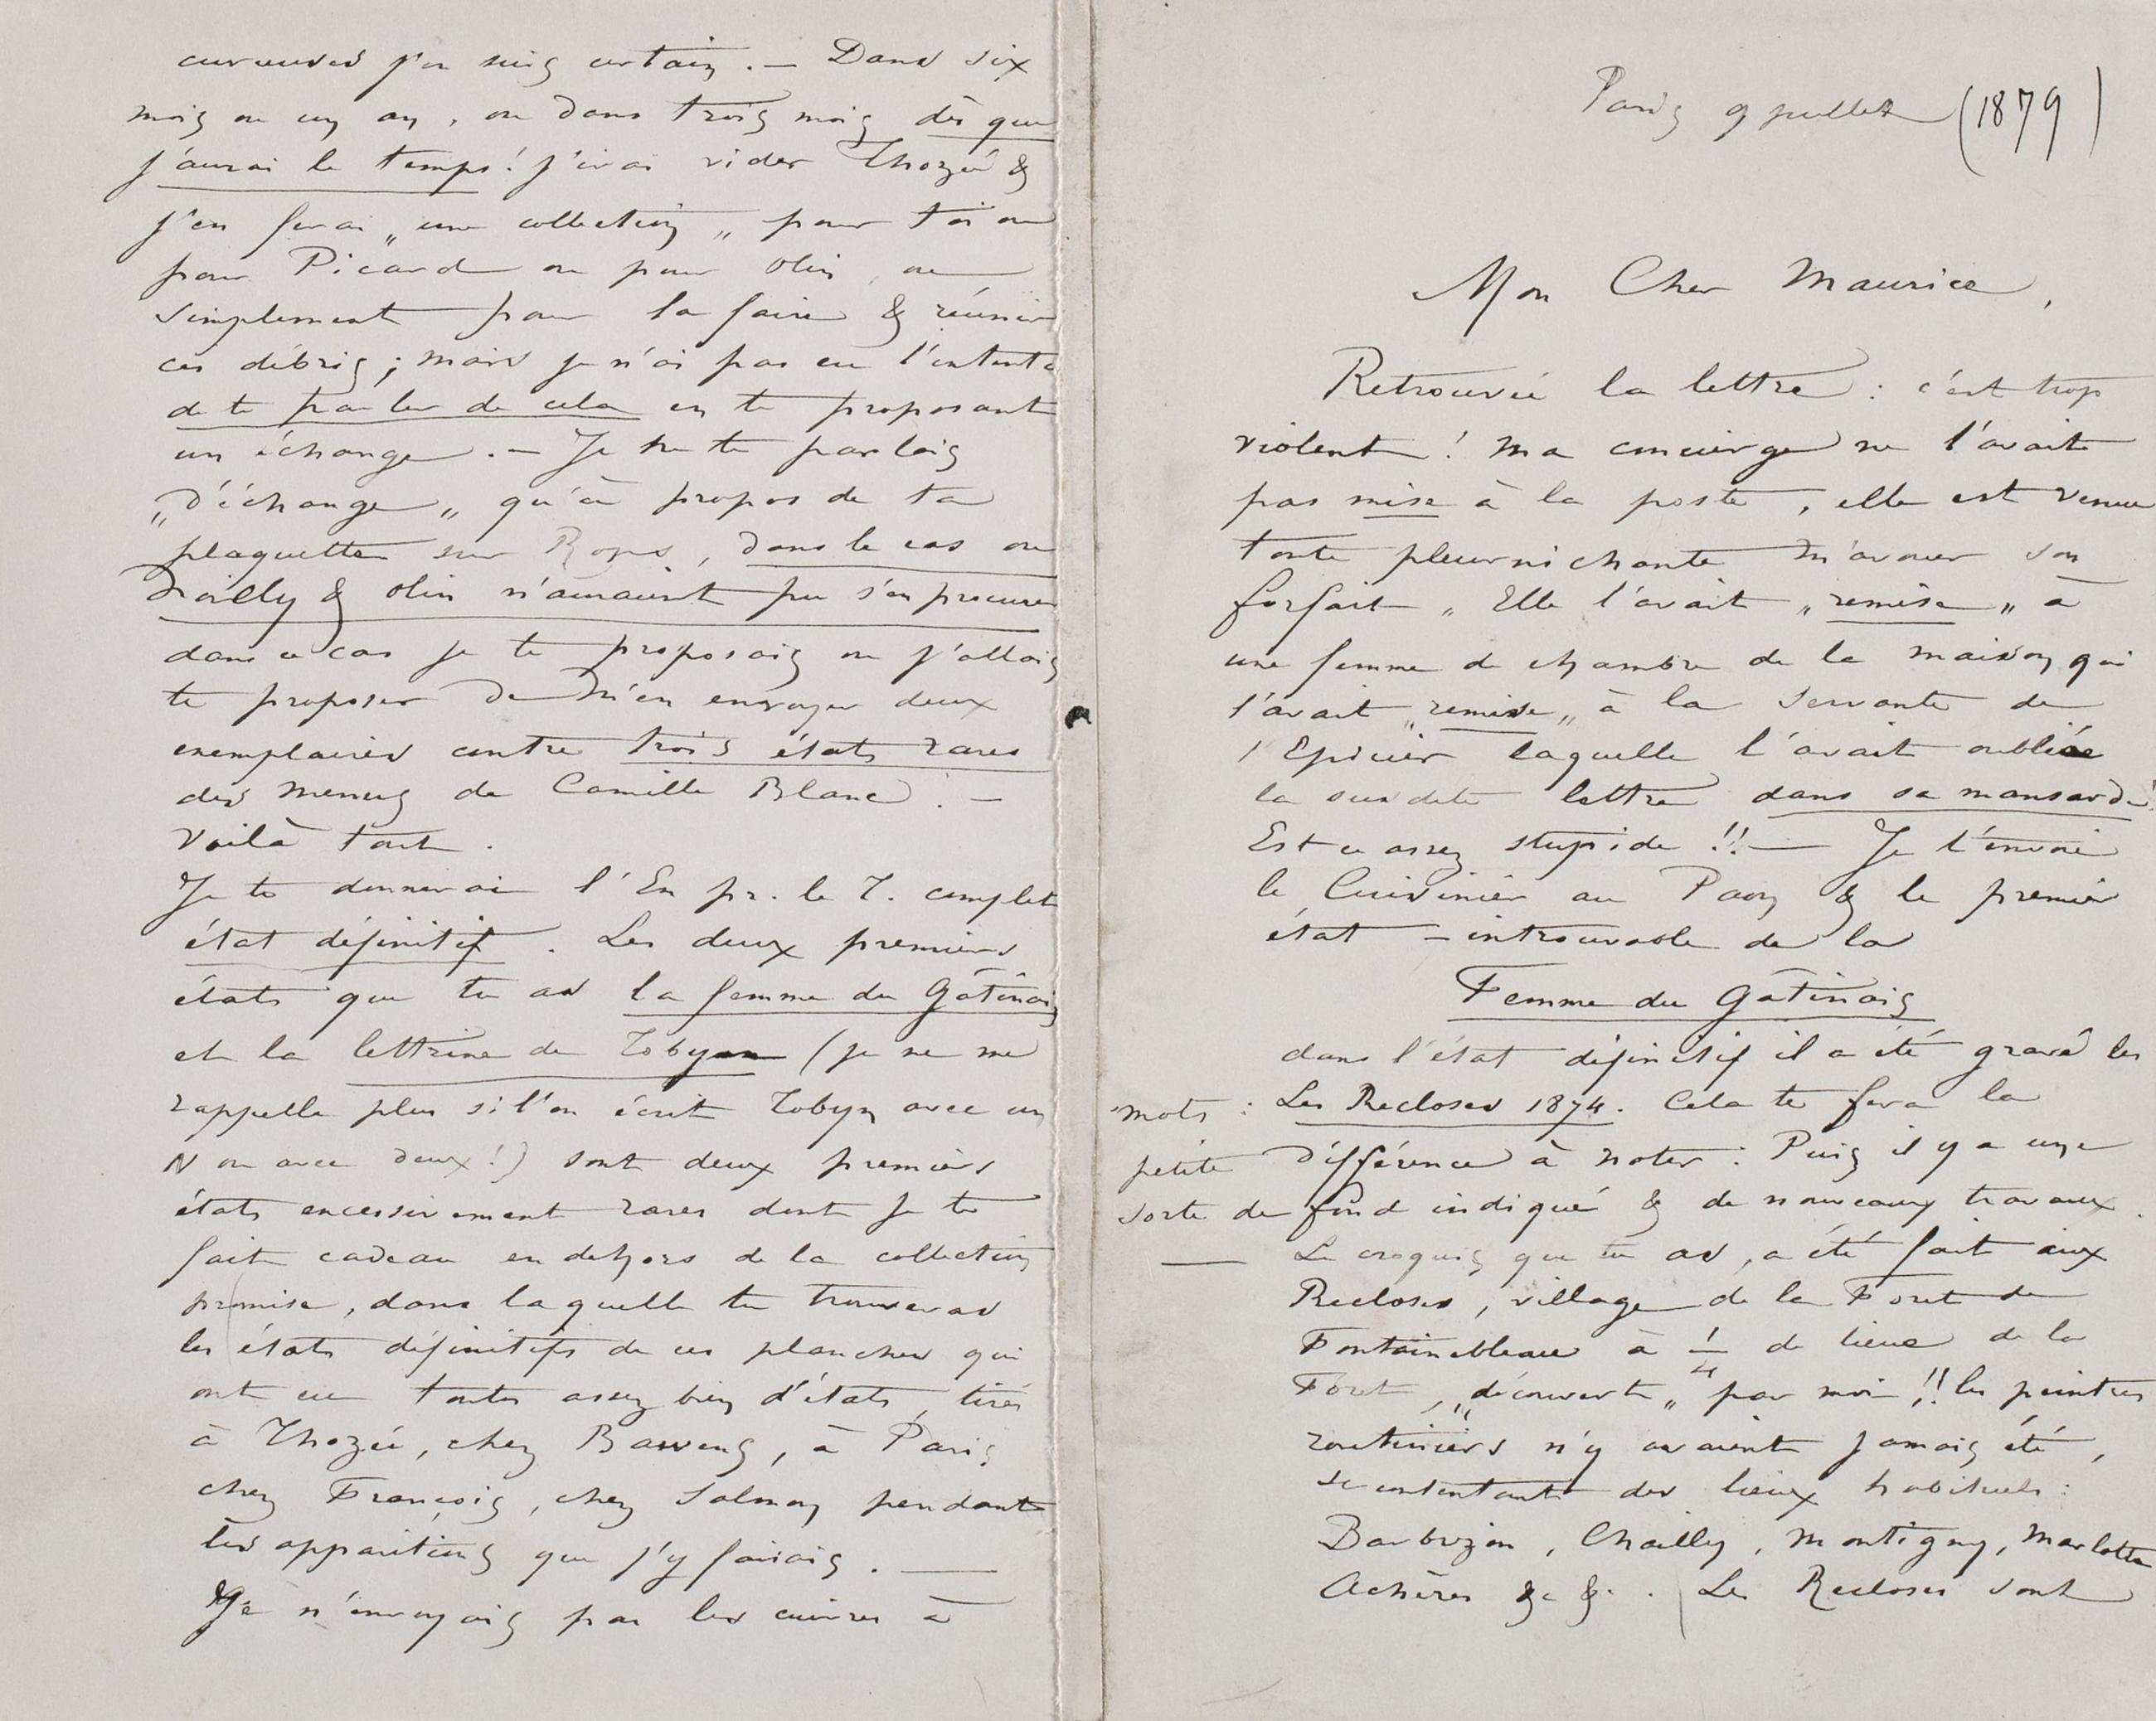 curieuses j'en suis certain. — Dans six
mois ou un an, ou dans trois mois dès que
j'aurai le temps! j'irai vider Thozée &
j'en ferai „une collection„ pour toi ou
pour Picard ou pour Olin, ou
simplement pour la faire & réunir
ces débris; mais je n'ai pas eu l'intent
de te parler de cela en te proposant
un échange. — Je ne te parlais
„d'échange„ qu'à propos de ta
plaquette sur Rops, dans le cas ou
Noilly & Olin n'auraient pu s'en procurer
dans ce cas je te proposais ou j'allais
te proposer de m'en envoyer deux
exemplaires contre trois états rares
des menus de Camille Blanc. —
Voilà tout.
Je te donnerai l'En pr. le T. complet
état définitif. Les deux premiers
états que tu as la femme du Gâtinais
et la lettrine de Tobyan (je ne me
rappelle plus si l'on écrit Tobyn avec un
N ou avec deux!) sont deux premiers
états excessivement rares dont je te
fait cadeau en dehors de la collection
promise, dans laquelle tu trouveras
les états définitifs de ces planches qui
ont eu toutes assez bien d'états, tirés
à Thozée, chez Bauwens, à Paris
chez François, chez Salmon pendant
les apparitions que j'y faisais. —
Je n'envoyais pas les cuivres à
Paris 9 juillet (1879)
Mon Cher Maurice,
Retrouvée la lettre: c'est trop
violent! Ma concierge ne l'avait
pas mise à la poste, elle est venue
toute pleurnichante m'avouer son
forfait. Elle l'avait „remise„ à
une femme de chambre de la maison qui
l'avait „remise„ à la servante de
l'Epicier laquelle l'avait oubliée
la susdite lettre dans sa mansarde!
Est ce assez stupide!! — Je t'envoie
le Cuisinier au Paon & le premier
état – introuvable de la
Femme du Gâtinais
dans l'état définitif il a été gravé les
mots: Les Recloses 1874. Cela te fera la
petite différence à noter: Puis il y a une
sorte de fond indiqué & de nouveaux travaux.
— Le croquis que tu as, a été fait aux
Recloses, village de la Foret de
Fontainebleau à 1/4 de lieue de la
Foret, „découvert„ par moi!! les peintres
routiniers n'y avaient jamais été,
se contentant des lieux habituels:
Barbizon, Chailly, Montigny, Marlotte
Achères &c &. Les Recloses sont